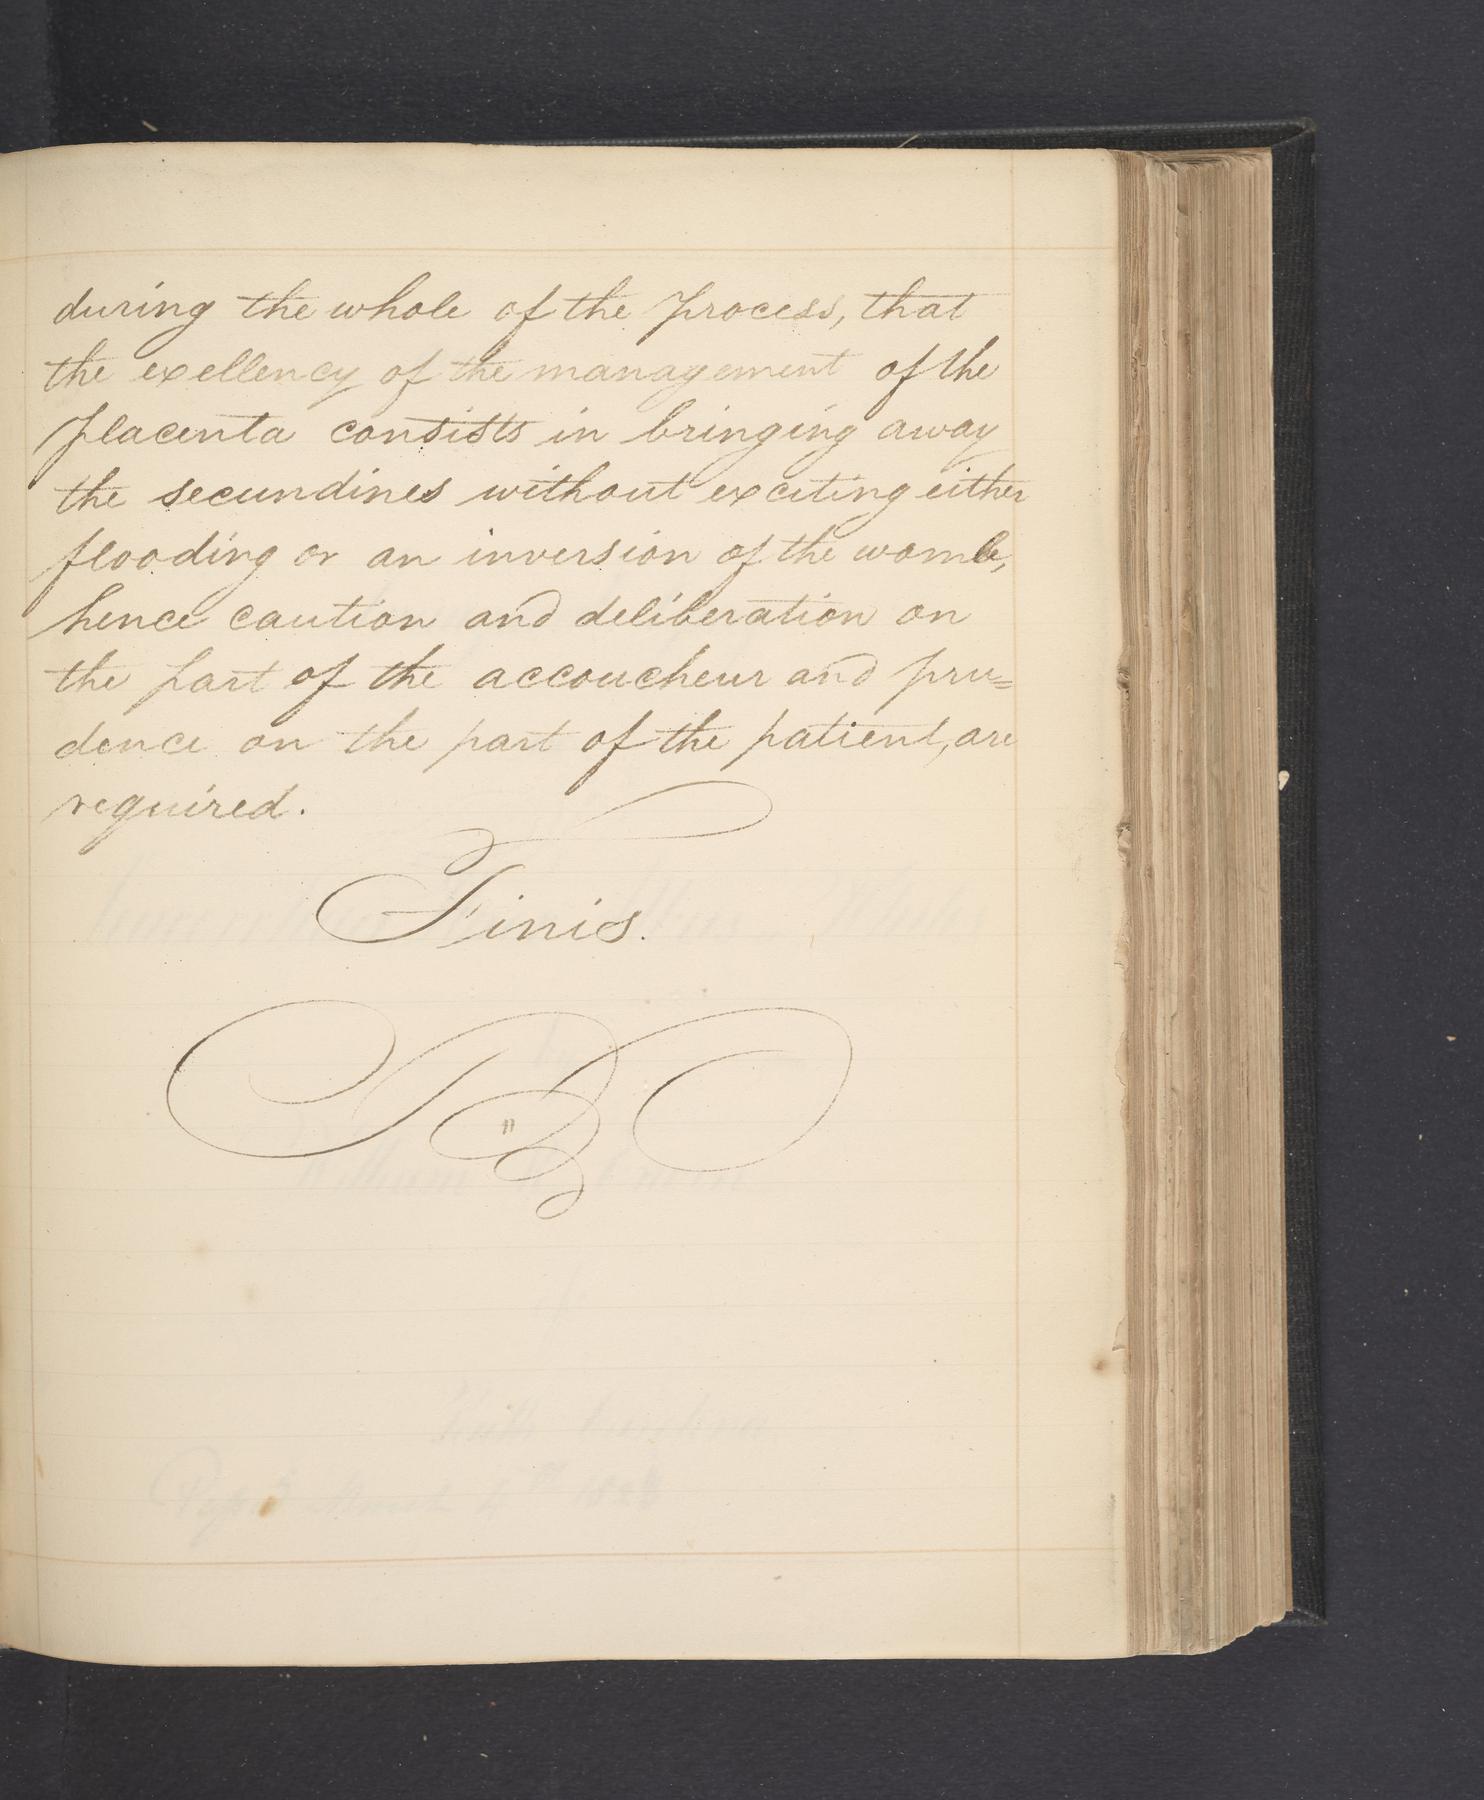 during the whole of the process, that
the exellency of the management of the
placenta consists in bringing away
the secundines without exciting either
flooding or an inversion of the womb,
hence caution and deliberation on
the part of the accoucheur and pru=
dence on the part of the patient, are
required.
Finis.